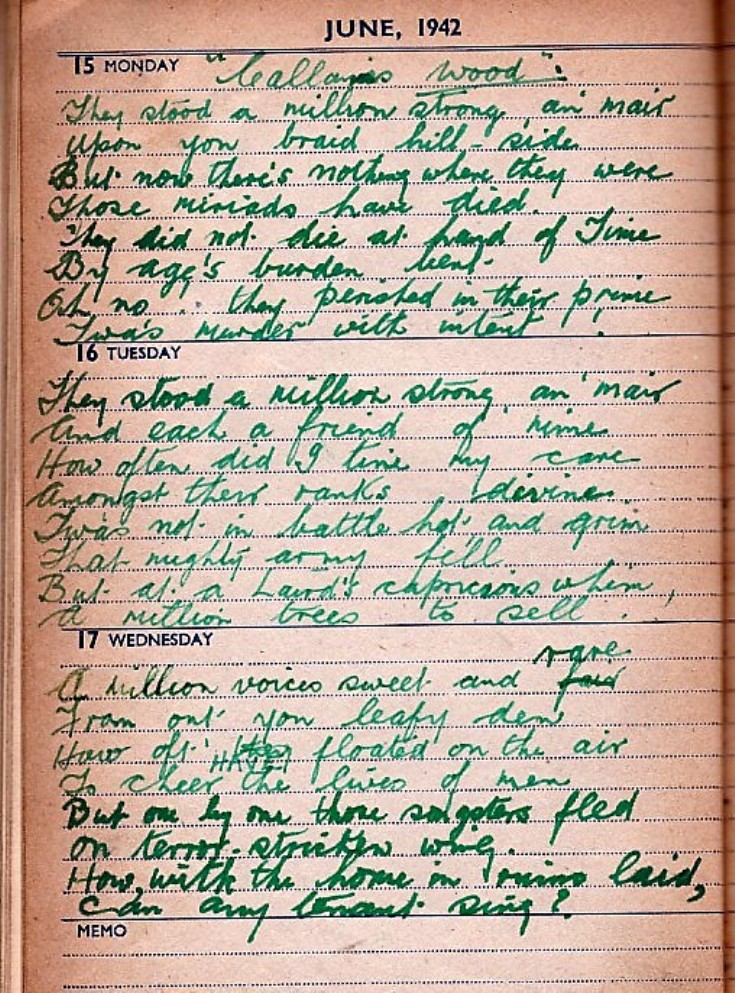 JUNE, 1942
15 MONDAY
"Callanyis Wood":
They stood a million strong, an' mair
Upon yon braid hill-side
But now there's nothing where they were
Those miriads have died.
They did not die at hand of Time
By age's burden bent
Oh, no .. they perished in their prime
Twas murder with intent !
16 TUESDAY
They stood a million strong, an' mair
And each a friend of mine
How often did I tine my care
Amongst their ranks divine.
Twas not in battle hot and grim
That mighty army fell
But at a Laird's capricious whim,
A million trees to sell.
17 WEDNESDAY
rare
A million voices sweet and fair
From out yon leafy den
How oft' HAVE floated on the air
To cheer the lives of men
But one by one those songsters fled
on terror-stricken wing.
How, with the home in ruins laid,
Can any tenant sing?
MEMO